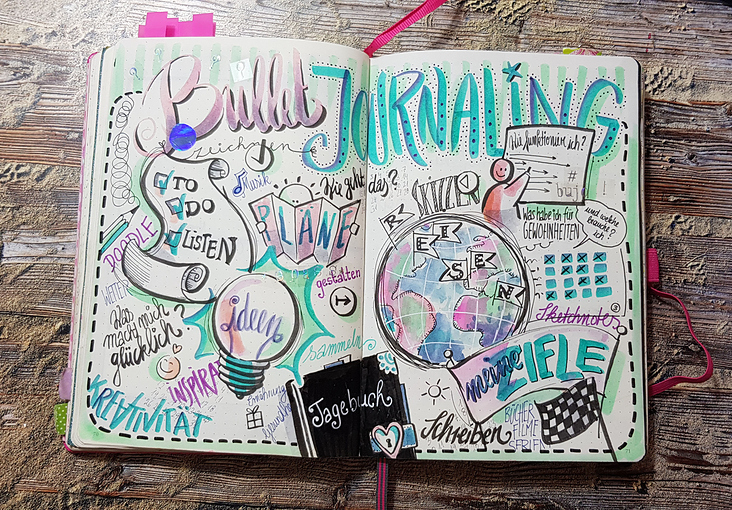 Bullet
JOURNALING
zeichnen
?
TO
DO
LISTEN
Musik
Wie geht das?
PLÄNE
gestalten
DOODLE
WETTER
Was
macht mich
glücklich?
Ideen
sammeln
INSPIRA
KREATIVITÄT
Ernährung
Gesundheit
Tagebuch
SKIZZEN
REISEN
Wie funktioniere ich?
#bujo
Was habe ich für
GEWOHNHEITEN
und welche
brauche
ich?
Sketchnotes
meine ZIELE
Schreiben
BÜCHER
FILME
SERIEN